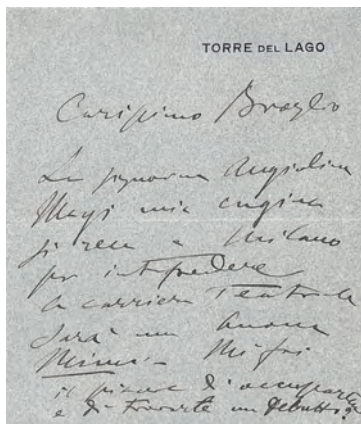 TORRE DEL LAGO
Carissimo Broglio
La signorina Angiolina
Magi mia cugina
si reca a Milano
per intraprendere
la carriera Teatrale
Sarà una buona
Mimì - Mi fai
il piacere di occuparti
e di trovarle un debutto?